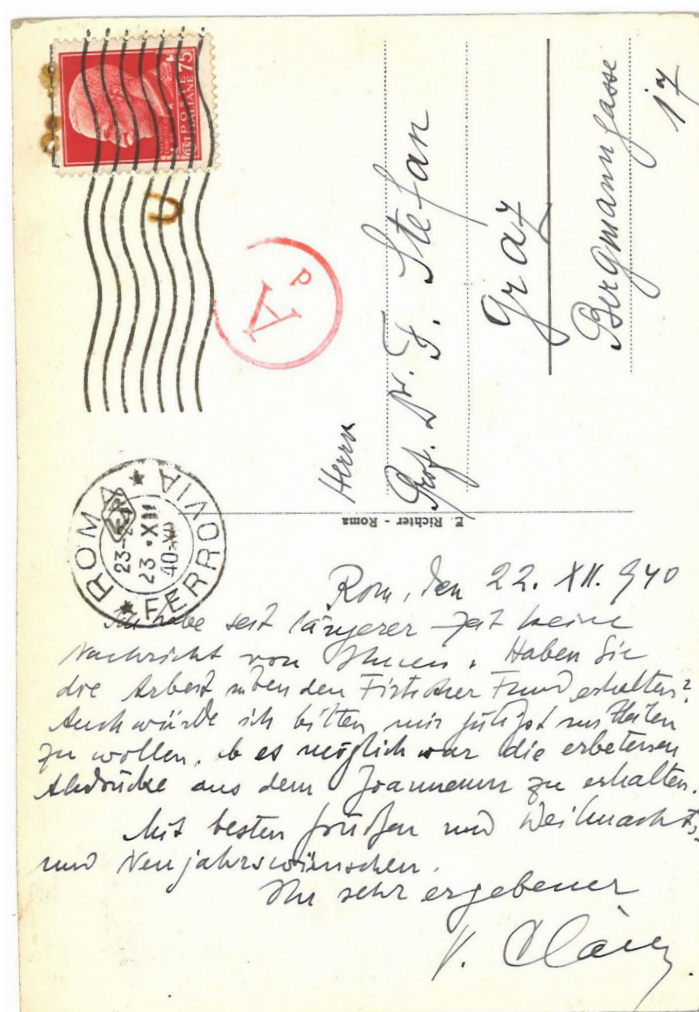 POSTE ITALIANE
75
ROMA FERROVIA
23 · XII
40-XI
A
P
Herrn
Prof. Dr. F. Stefan
Graz
Bergmanngasse
17
E. Richter - Roma
Rom, den 22. XII. 940
Ich habe seit längerer Zeit keine
Nachricht von Ihnen. Haben Sie
die Arbeit über den Fund erhalten?
Auch würde ich bitten mir
zu wollen, ob es möglich war die erbetenen
Abdrücke aus dem Joanneum zu erhalten.
Mit besten Grüßen und Weihnachts-
und Neujahrswünschen.
Ihr sehr ergebener
V.